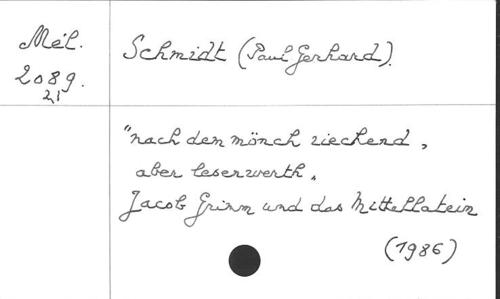 Mél.
2089.
21
Schmidt (Paul Gerhard).
"nach dem mönch riechend,
aber leserwerth"
Jacob Grimm und das Mittellatein
(1986)